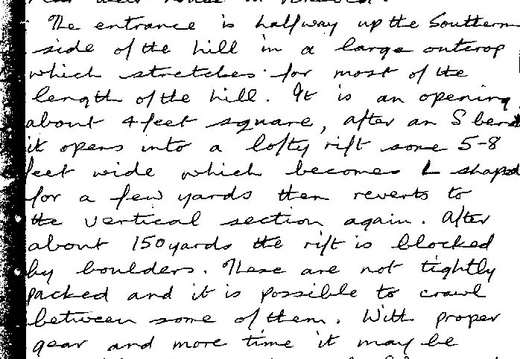 The entrance is halfway up the Southern
side of the hill in a large outcrop
which stretches for most of the
length of the hill. It is an opening
about 4 feet square, after an S bend
it opens into a lofty rift some 5-8
feet wide which becomes L shaped
for a few yards then reverts to
the vertical section again. After
about 150 yards the rift is blocked
by boulders. These are not tightly
packed and it is possible to crawl
between some of them. With proper
gear and more time it may be